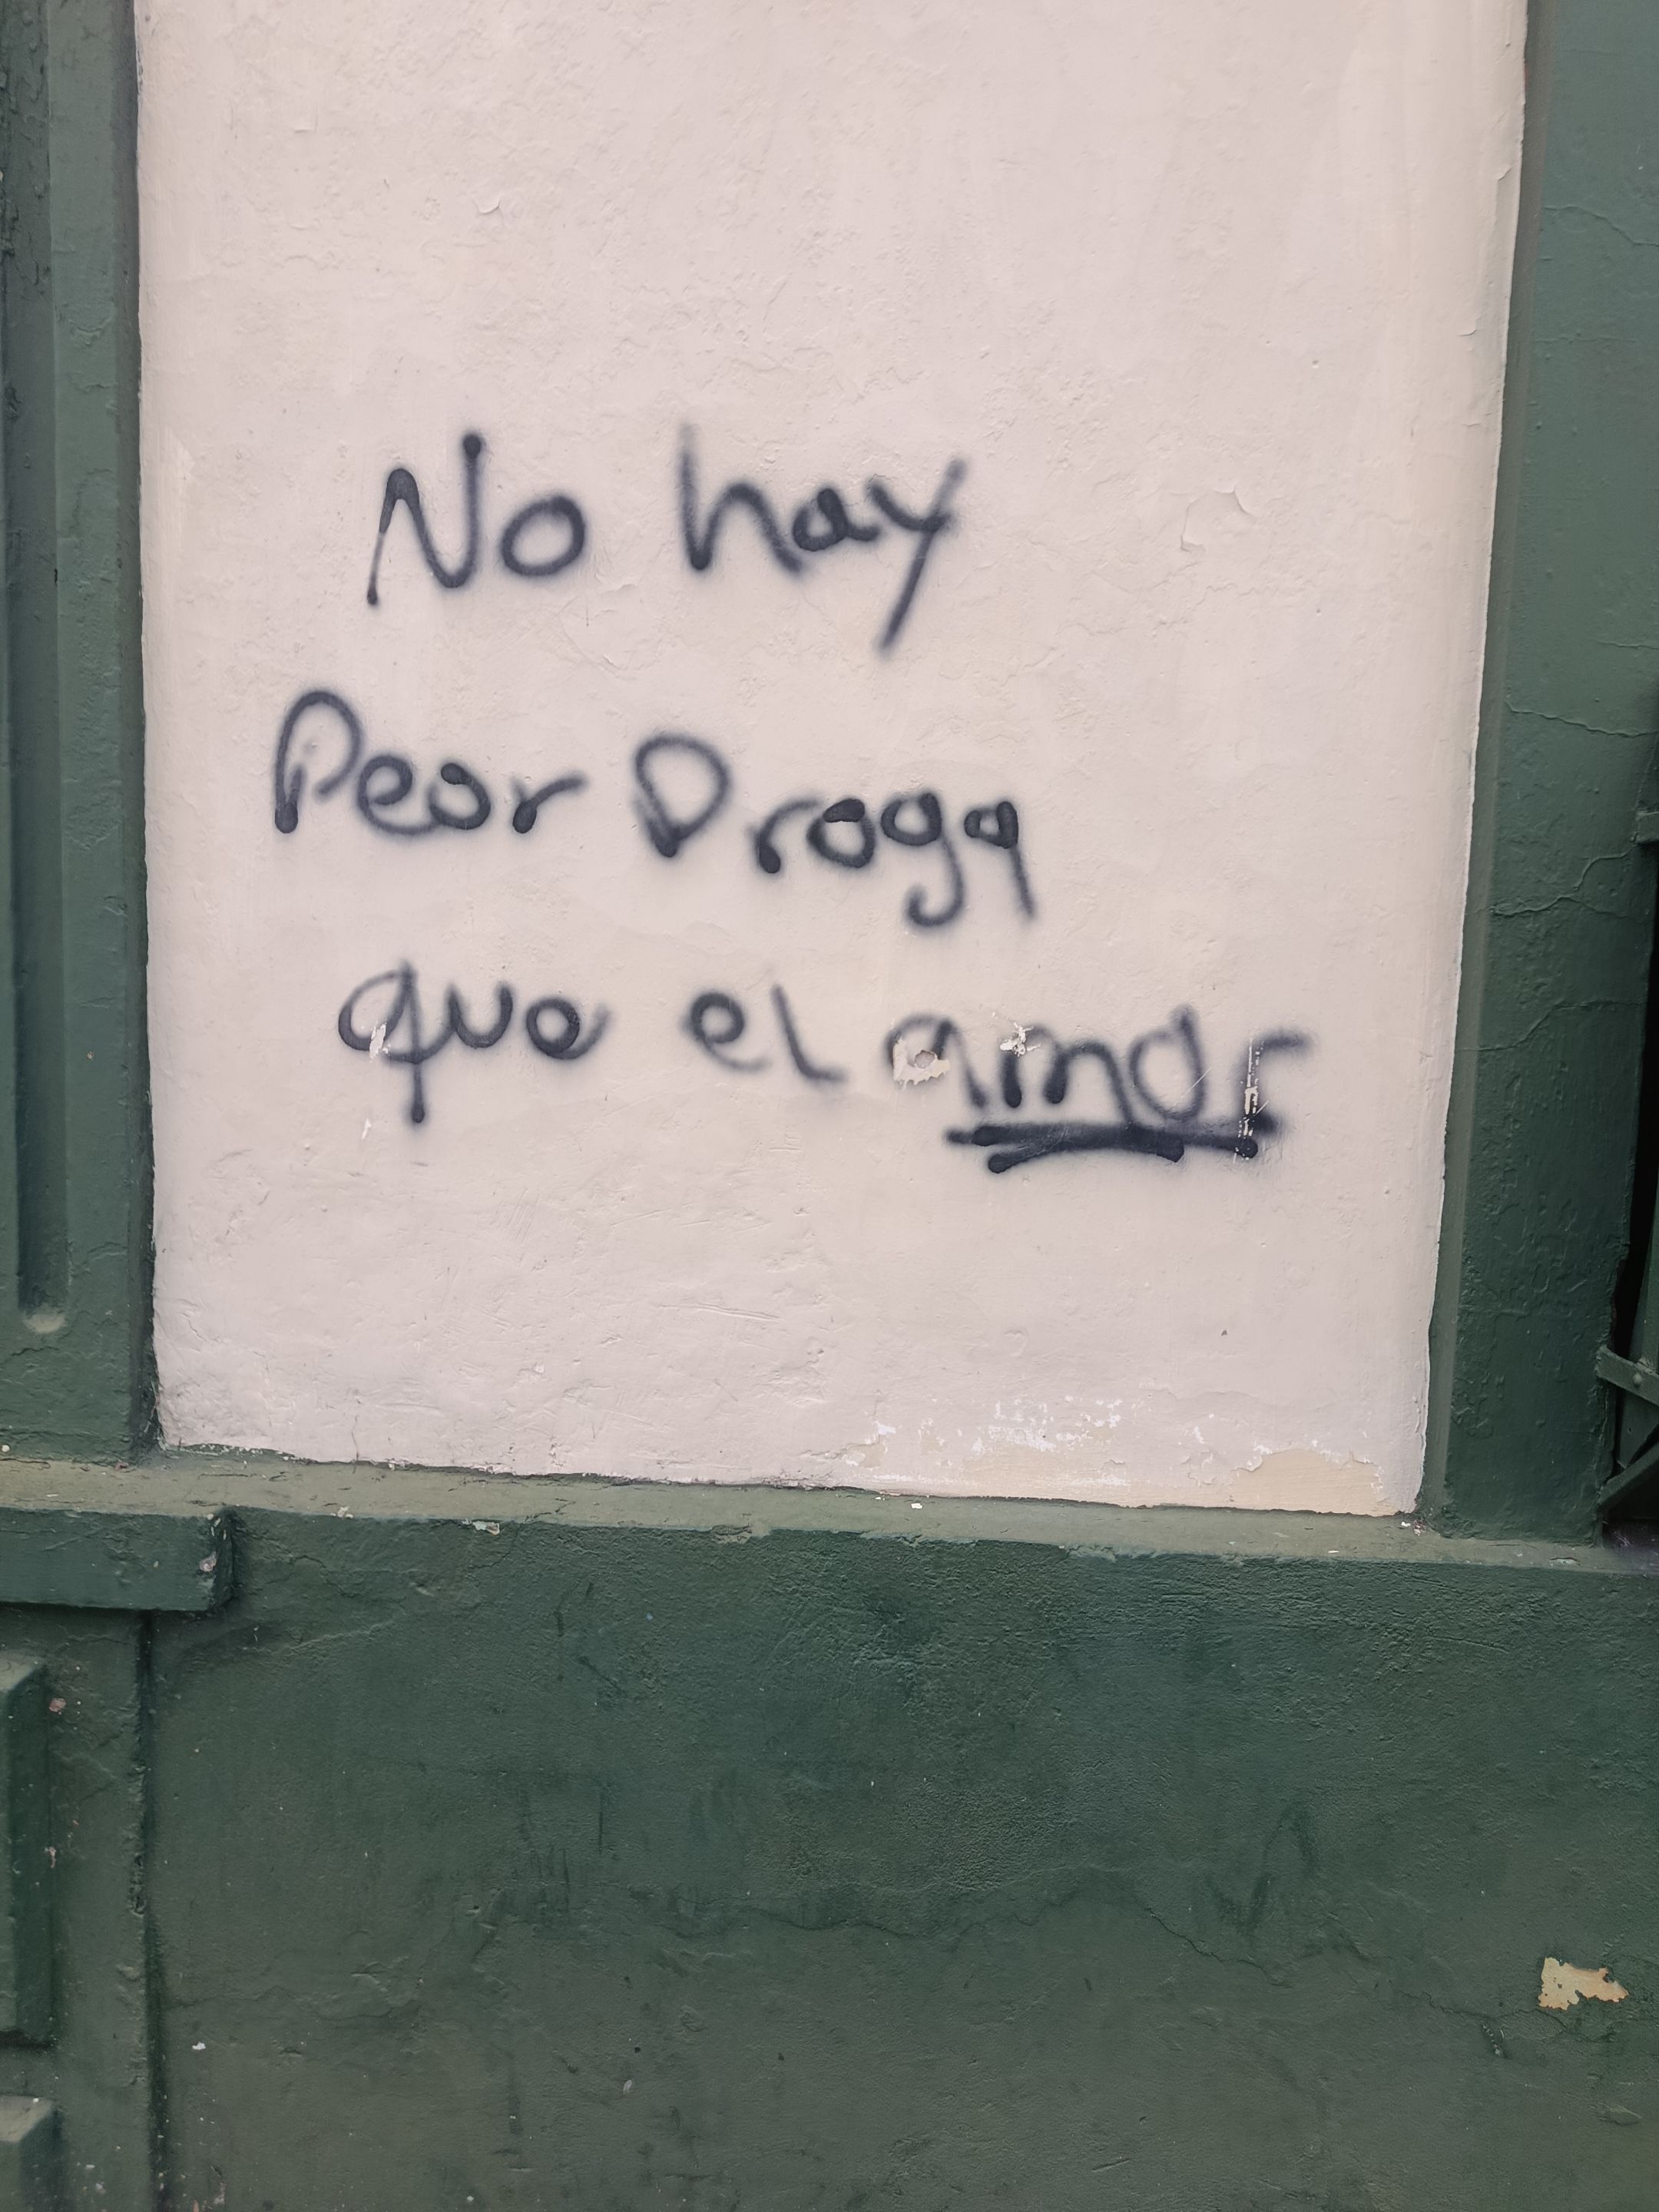 No hay
Peor Droga
que el amor